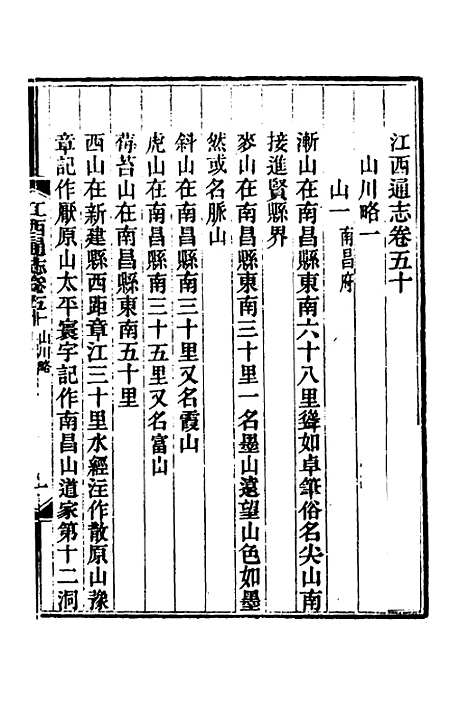 江西通志卷五十
山川略一
山一 南昌府
漸山在南昌縣東南六十八里聳如卓筆俗名尖山南
接進賢縣界
麥山在南昌縣東南三十里一名墨山遠望山色如墨
然或名脈山
斜山在南昌縣南三十里又名霞山
虎山在南昌縣南三十五里又名富山
莓苔山在南昌縣東南五十里
西山在新建縣西距章江三十里水經注作散原山豫
章記作厭原山太平寰宇記作南昌山道家第十二洞
江西通志卷五十 山川略 一